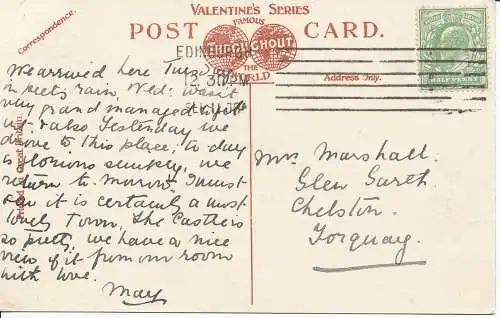 VALENTINE'S SERIES
FAMOUS
POST CARD.
THROUGHOUT
THE
WORLD
Correspondence.
Address Only.
Printed in Great Britain.
EDINBURGH
HALF PENNY
We arrived here Tuesday
in rain, Wed: wasn't
very grand managed to get
out & also Yesterday we
drove to this place, to day
is glorious sunshy. we
return to-morrow. I must
say it is certainly a most
lovely Town, the Castle is
so pretty, we have a nice
view of it from our room
with love.
May
Mrs Marshall.
Glen Gareth
Chelston.
Torquay.